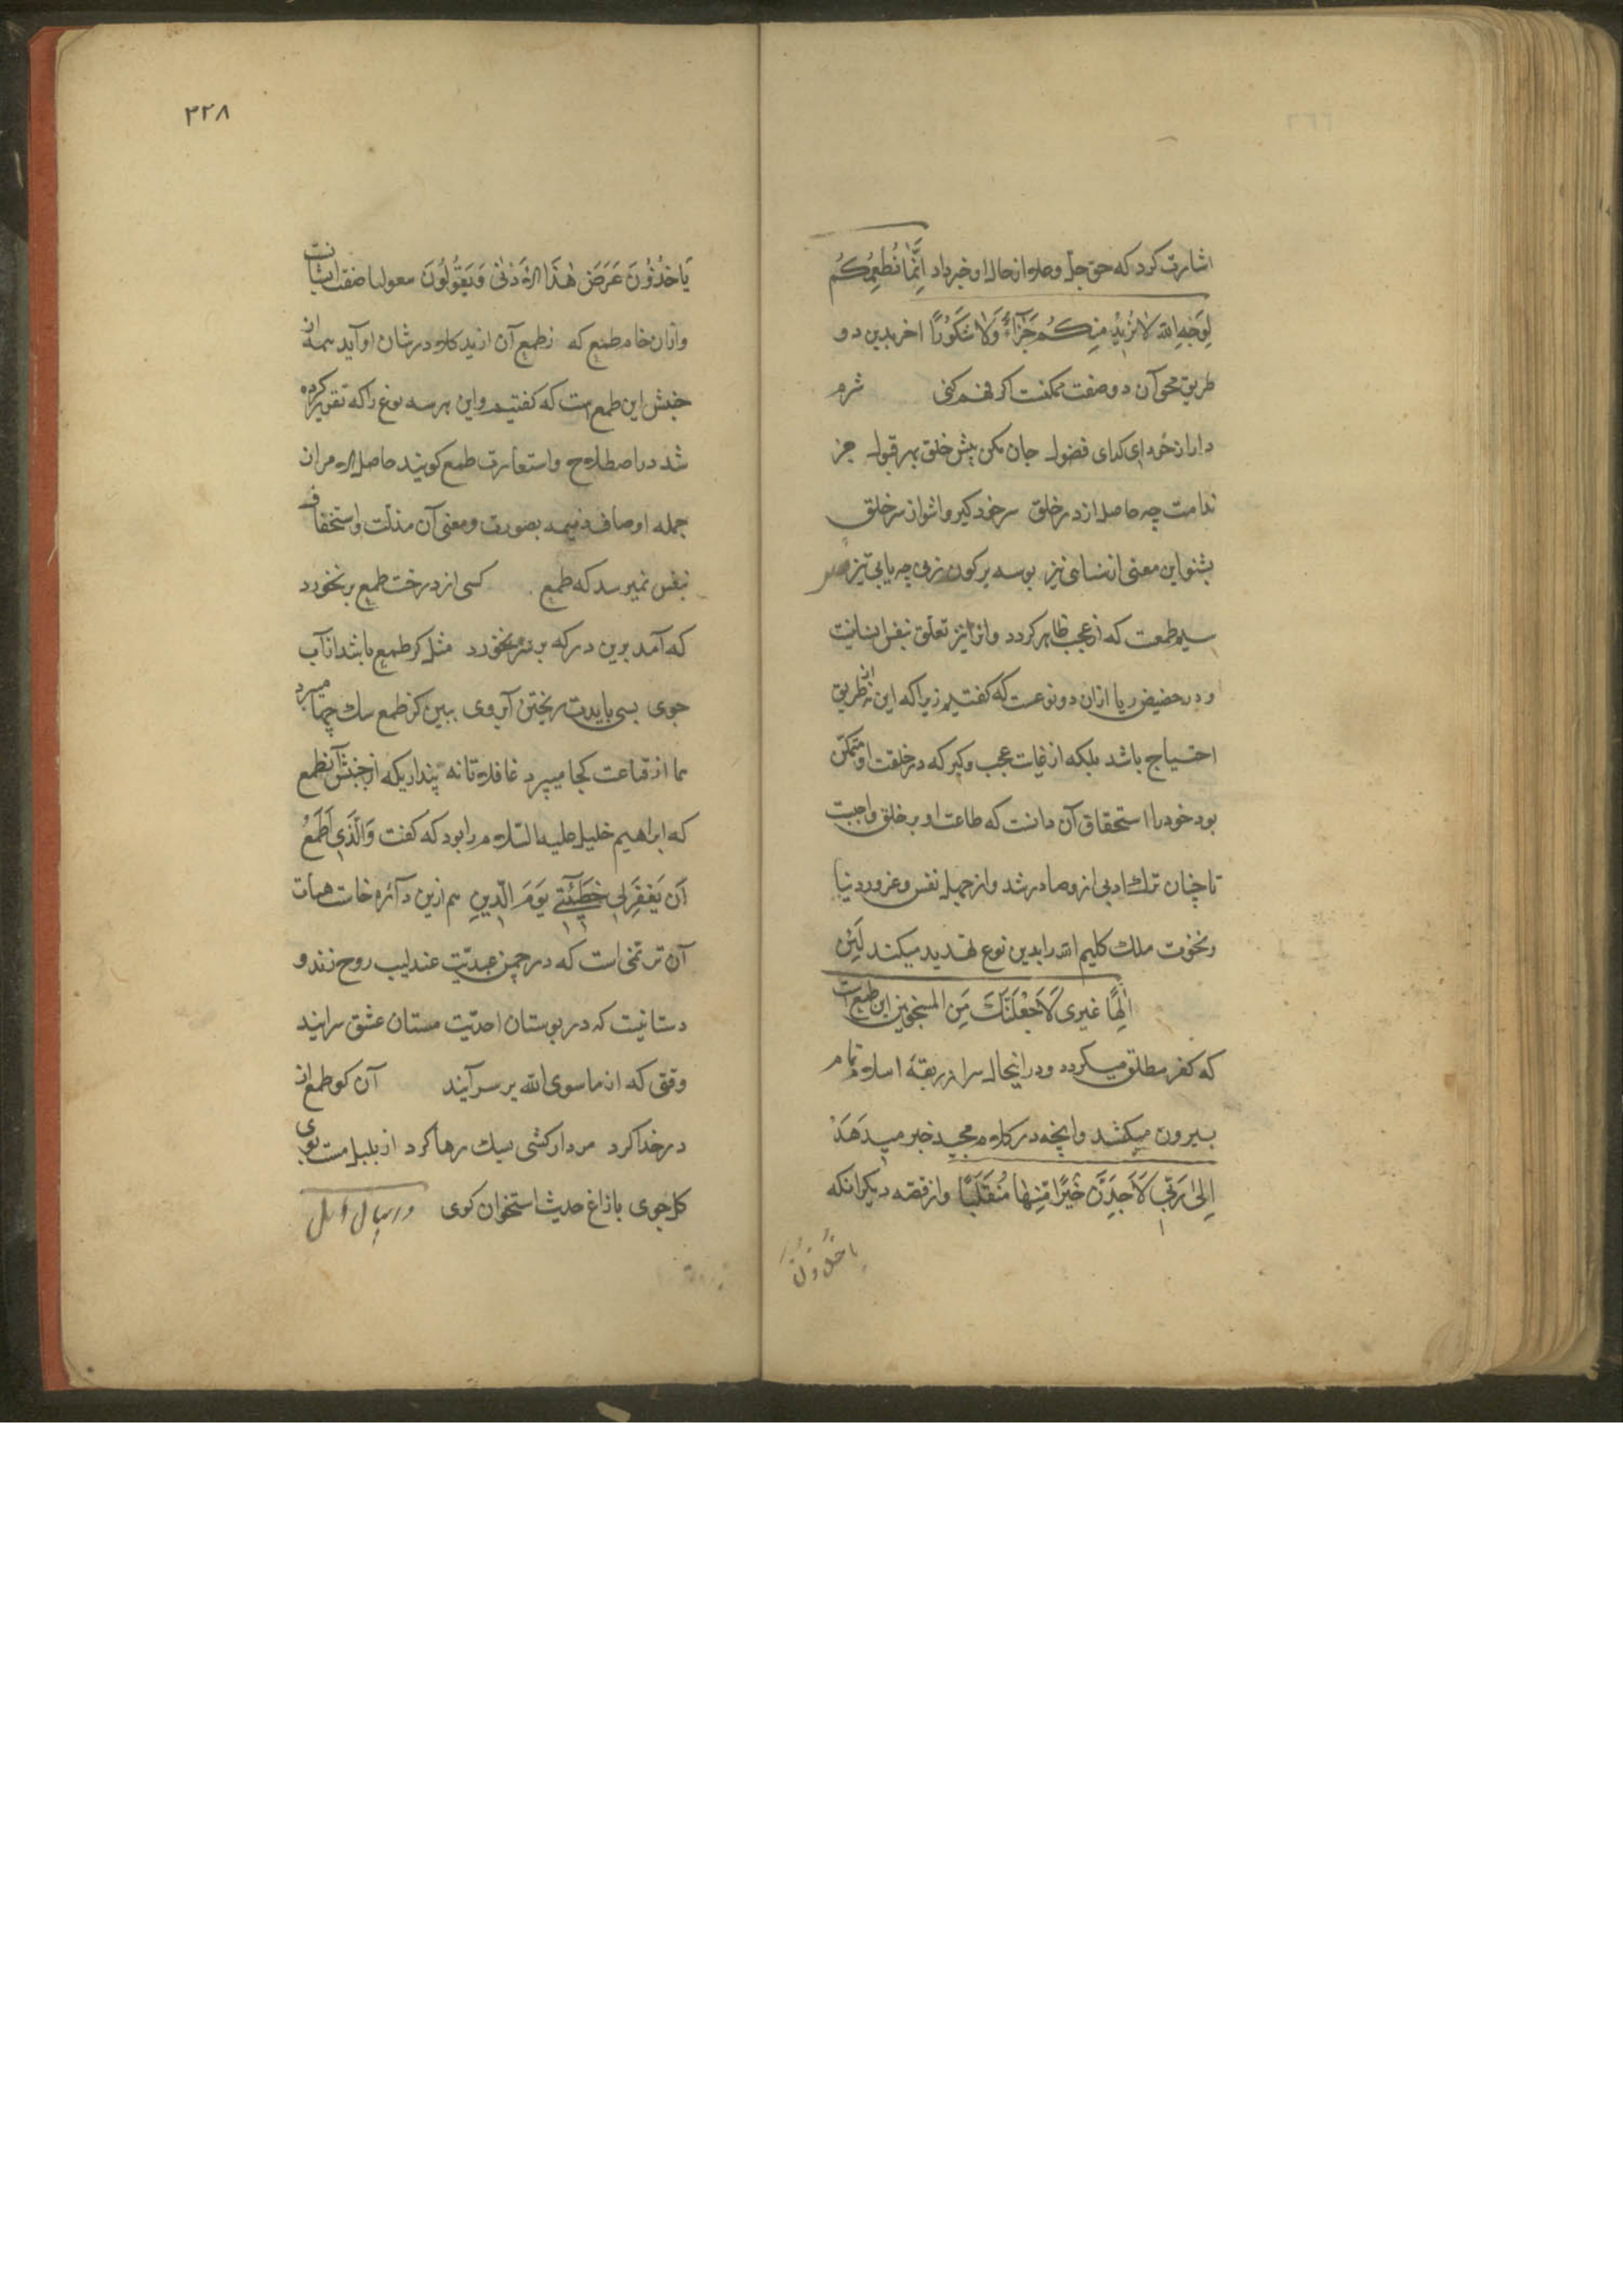 اشارت کرد که حق جل وعلا از حال او خبر داد اِنَّمَا نُطْعِمُكُمْ
لِوَجْهِ الله لَا نُرِیْدُ مِنكُمْ جَزَآءً وَلَا شَكُوْرًا اخر بدین دو
طریق محو آن دو صفت ممکنست اکر فهم کنی شرم
دار از خود ای کدای فضول جان مکن پیش خلق بهر قبول جز
ندامت چه حاصل از در خلق سر خود کیر واشو از سر خلق
بشنو این معنی از سنایی نیز بوسه بر کون زنی چه یابی تیز
سیم طمعست که از عجب ظاهر کردد وانرا نیز تعلق بنفس انسانیت
ودر حضیض ریا ازان دو نوعست که کفتیم زیرا که این نه از طریق
احتیاج باشد بلکه از غایت عجب وکبر که در خلقت او متمکن
بود خود را استحقاق آن دانست که طاعت او بر خلق واجبست
تا چنان ترك ادبی ازو صادر شد واز جهل نفس وغرور دنیا
ونخوت ملك کلیم الله را بدین نوع تهدید میکند لَئِنِ
اِلٰهًا غیری لَاَجْعَلَنَّكَ مِنَ المسجونین این طمع است
که کفر مطلق میکردد ودر انیحال سر از ربقهٔ اسلام تمام
بیرون میکشد وانچه در کلام مجید خبر میدهد
اِلیٰ رَبِّی لَاَجِدَنَّ خَیْرًا مِّنهٰا مُنْقَلَبًا واز قصه دیکر انکه
یاخذون
۲۲۸
یَاخُذُوْنَ عَرَضَ هٰذَا الاَدْنٰی وَیَقُوْلُوْنَ
وازان خام طمع که زطمع آن از ید کلام در شان او آید همه از
جنبش این طمع است که کفتیم واین هر سه نوع را که تقریر کرده
شد در اصطلاح واستعارت طمع کویند حاصل الامر ازان
جمله اوصاف ذمیمه بصورت ومعنی آن مذلت واستخفاف
بنفس نمیرسد که طمع کسی از درخت طمع بر نخورد
که آمد برین در که بر سر نخورد مثل کر طمع باشد از آب
جوی بسی بایدت ریختن آبروی ببین کز طمع سك چها میبرد
هما از قناعت کجا میپرد غافلا تا نه پنداریکه از جنبش آنطمع
که ابراهیم خلیل علیه السلام را بود که کفت وَالَّذِی اَطْمَعُ
اَن یَغْفِرَلِی خَطِیْٓئَتِے یَوْمَ الدِّیْنِ هم ازین دآئره خاست هیهات
آن ترنمی است که در چمن عبدیّت عندلیب روح زند و
دستانیست که در بوستان احدیّت مستان عشق سرایند
وقتی که از ما سوی الله بر سر آیند آن کو طمع از
در خدا کرد مردار کشی بسك رها کرد از بلبل مست بوی
کل جوی با زاغ حدیث استخوان کوی